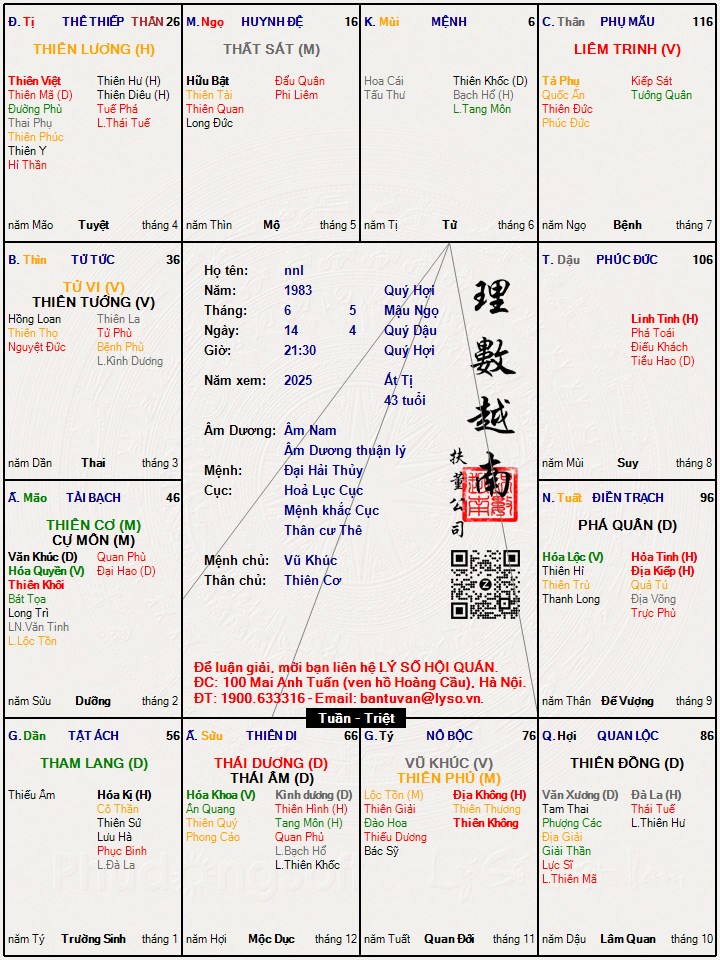 Đ. Tị THÊ THIẾP THÂN 26
THIÊN LƯƠNG (H)
Thiên Việt Thiên Hư (H)
Thiên Mã (D) Thiên Diêu (H)
Đường Phù Tuế Phá
Thai Phụ L.Thái Tuế
Thiên Phúc
Thiên Y
Hỉ Thần
năm Mão Tuyệt tháng 4
M. Ngọ HUYNH ĐỆ 16
THẤT SÁT (M)
Hữu Bật Đẩu Quân
Thiên Tài Phi Liêm
Thiên Quan
Long Đức
năm Thìn Mộ tháng 5
K. Mùi MỆNH 6
Hoa Cái Thiên Khốc (D)
Tấu Thư Bạch Hổ (H)
L.Tang Môn
năm Tị Tử tháng 6
C. Thân PHỤ MẪU 116
LIÊM TRINH (V)
Tả Phụ Kiếp Sát
Quốc Ấn Tướng Quân
Thiên Đức
Phúc Đức
năm Ngọ Bệnh tháng 7
B. Thìn TỬ TỨC 36
TỬ VI (V)
THIÊN TƯỚNG (V)
Hồng Loan Thiên La
Thiên Thọ Tử Phù
Nguyệt Đức Bệnh Phù
L.Kình Dương
năm Dần Thai tháng 3
Họ tên: nnl
Năm: 1983 Quý Hợi
Tháng: 6 5 Mậu Ngọ
Ngày: 14 4 Quý Dậu
Giờ: 21:30 Quý Hợi
Năm xem: 2025 Ất Tị
43 tuổi
Âm Dương: Âm Nam
Âm Dương thuận lý
Mệnh: Đại Hải Thủy
Cục: Hoả Lục Cục
Mệnh khắc Cục
Thân cư Thê
Mệnh chủ: Vũ Khúc
Thân chủ: Thiên Cơ
理數越南
扶董公司
Để luận giải, mời bạn liên hệ LÝ SỐ HỘI QUÁN.
ĐC: 100 Mai Anh Tuấn (ven hồ Hoàng Cầu), Hà Nội.
ĐT: 1900.633316 - Email: bantuvan@lyso.vn.
Tuần - Triệt
T. Dậu PHÚC ĐỨC 106
Linh Tinh (H)
Phá Toái
Điếu Khách
Tiểu Hao (D)
năm Mùi Suy tháng 8
Ấ. Mão TÀI BẠCH 46
THIÊN CƠ (M)
CỰ MÔN (M)
Văn Khúc (D) Quan Phù
Hóa Quyền (V) Đại Hao (D)
Thiên Khôi
Bát Tọa
Long Trì
LN.Văn Tinh
L.Lộc Tồn
năm Sửu Dưỡng tháng 2
N. Tuất ĐIỀN TRẠCH 96
PHÁ QUÂN (D)
Hóa Lộc (V) Hỏa Tinh (H)
Thiên Hỉ Địa Kiếp (H)
Thiên Trù Quả Tú
Thanh Long Địa Võng
Trực Phù
năm Thân Đế Vượng tháng 9
G. Dần TẬT ÁCH 56
THAM LANG (D)
Thiếu Âm Hóa Kị (H)
Cô Thần
Thiên Sứ
Lưu Hà
Phục Binh
L.Đà La
năm Tý Trường Sinh tháng 1
Ấ. Sửu THIÊN DI 66
THÁI DƯƠNG (D)
THÁI ÂM (D)
Hóa Khoa (V) Kình dương (D)
Ân Quang Thiên Hình (H)
Thiên Quý Tang Môn (H)
Phong Cáo Quan Phủ
L.Bạch Hổ
L.Thiên Khốc
năm Hợi Mộc Dục tháng 12
G. Tý NÔ BỘC 76
VŨ KHÚC (V)
THIÊN PHỦ (M)
Lộc Tồn (M) Địa Không (H)
Thiên Giải Thiên Thương
Đào Hoa Thiên Không
Thiếu Dương
Bác Sỹ
năm Tuất Quan Đới tháng 11
Q. Hợi QUAN LỘC 86
THIÊN ĐỒNG (D)
Văn Xương (D) Đà La (H)
Tam Thai Thái Tuế
Phượng Các L.Thiên Hư
Địa Giải
Giải Thần
Lực Sĩ
L.Thiên Mã
năm Dậu Lâm Quan tháng 10